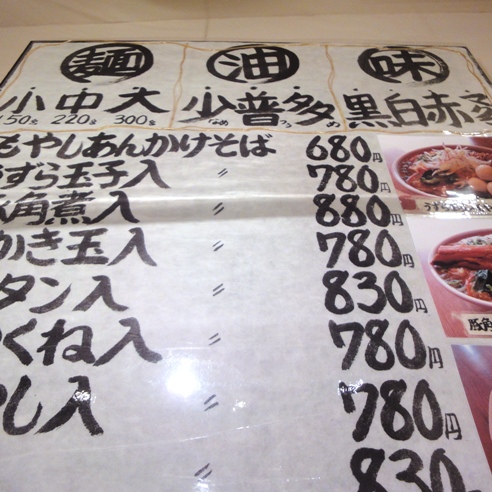 麺 油 味
小 中 大 少 普 多 黒 白 赤
150g 220g 300g なめ つう め
もやしあんかけそば 680円
うずら玉子入 〃 780円
角煮入 〃 880円
かき玉入 〃 780円
タン入 〃 830円
くね入 〃 780円
し入 〃 780円
〃 830
うずら
豚角